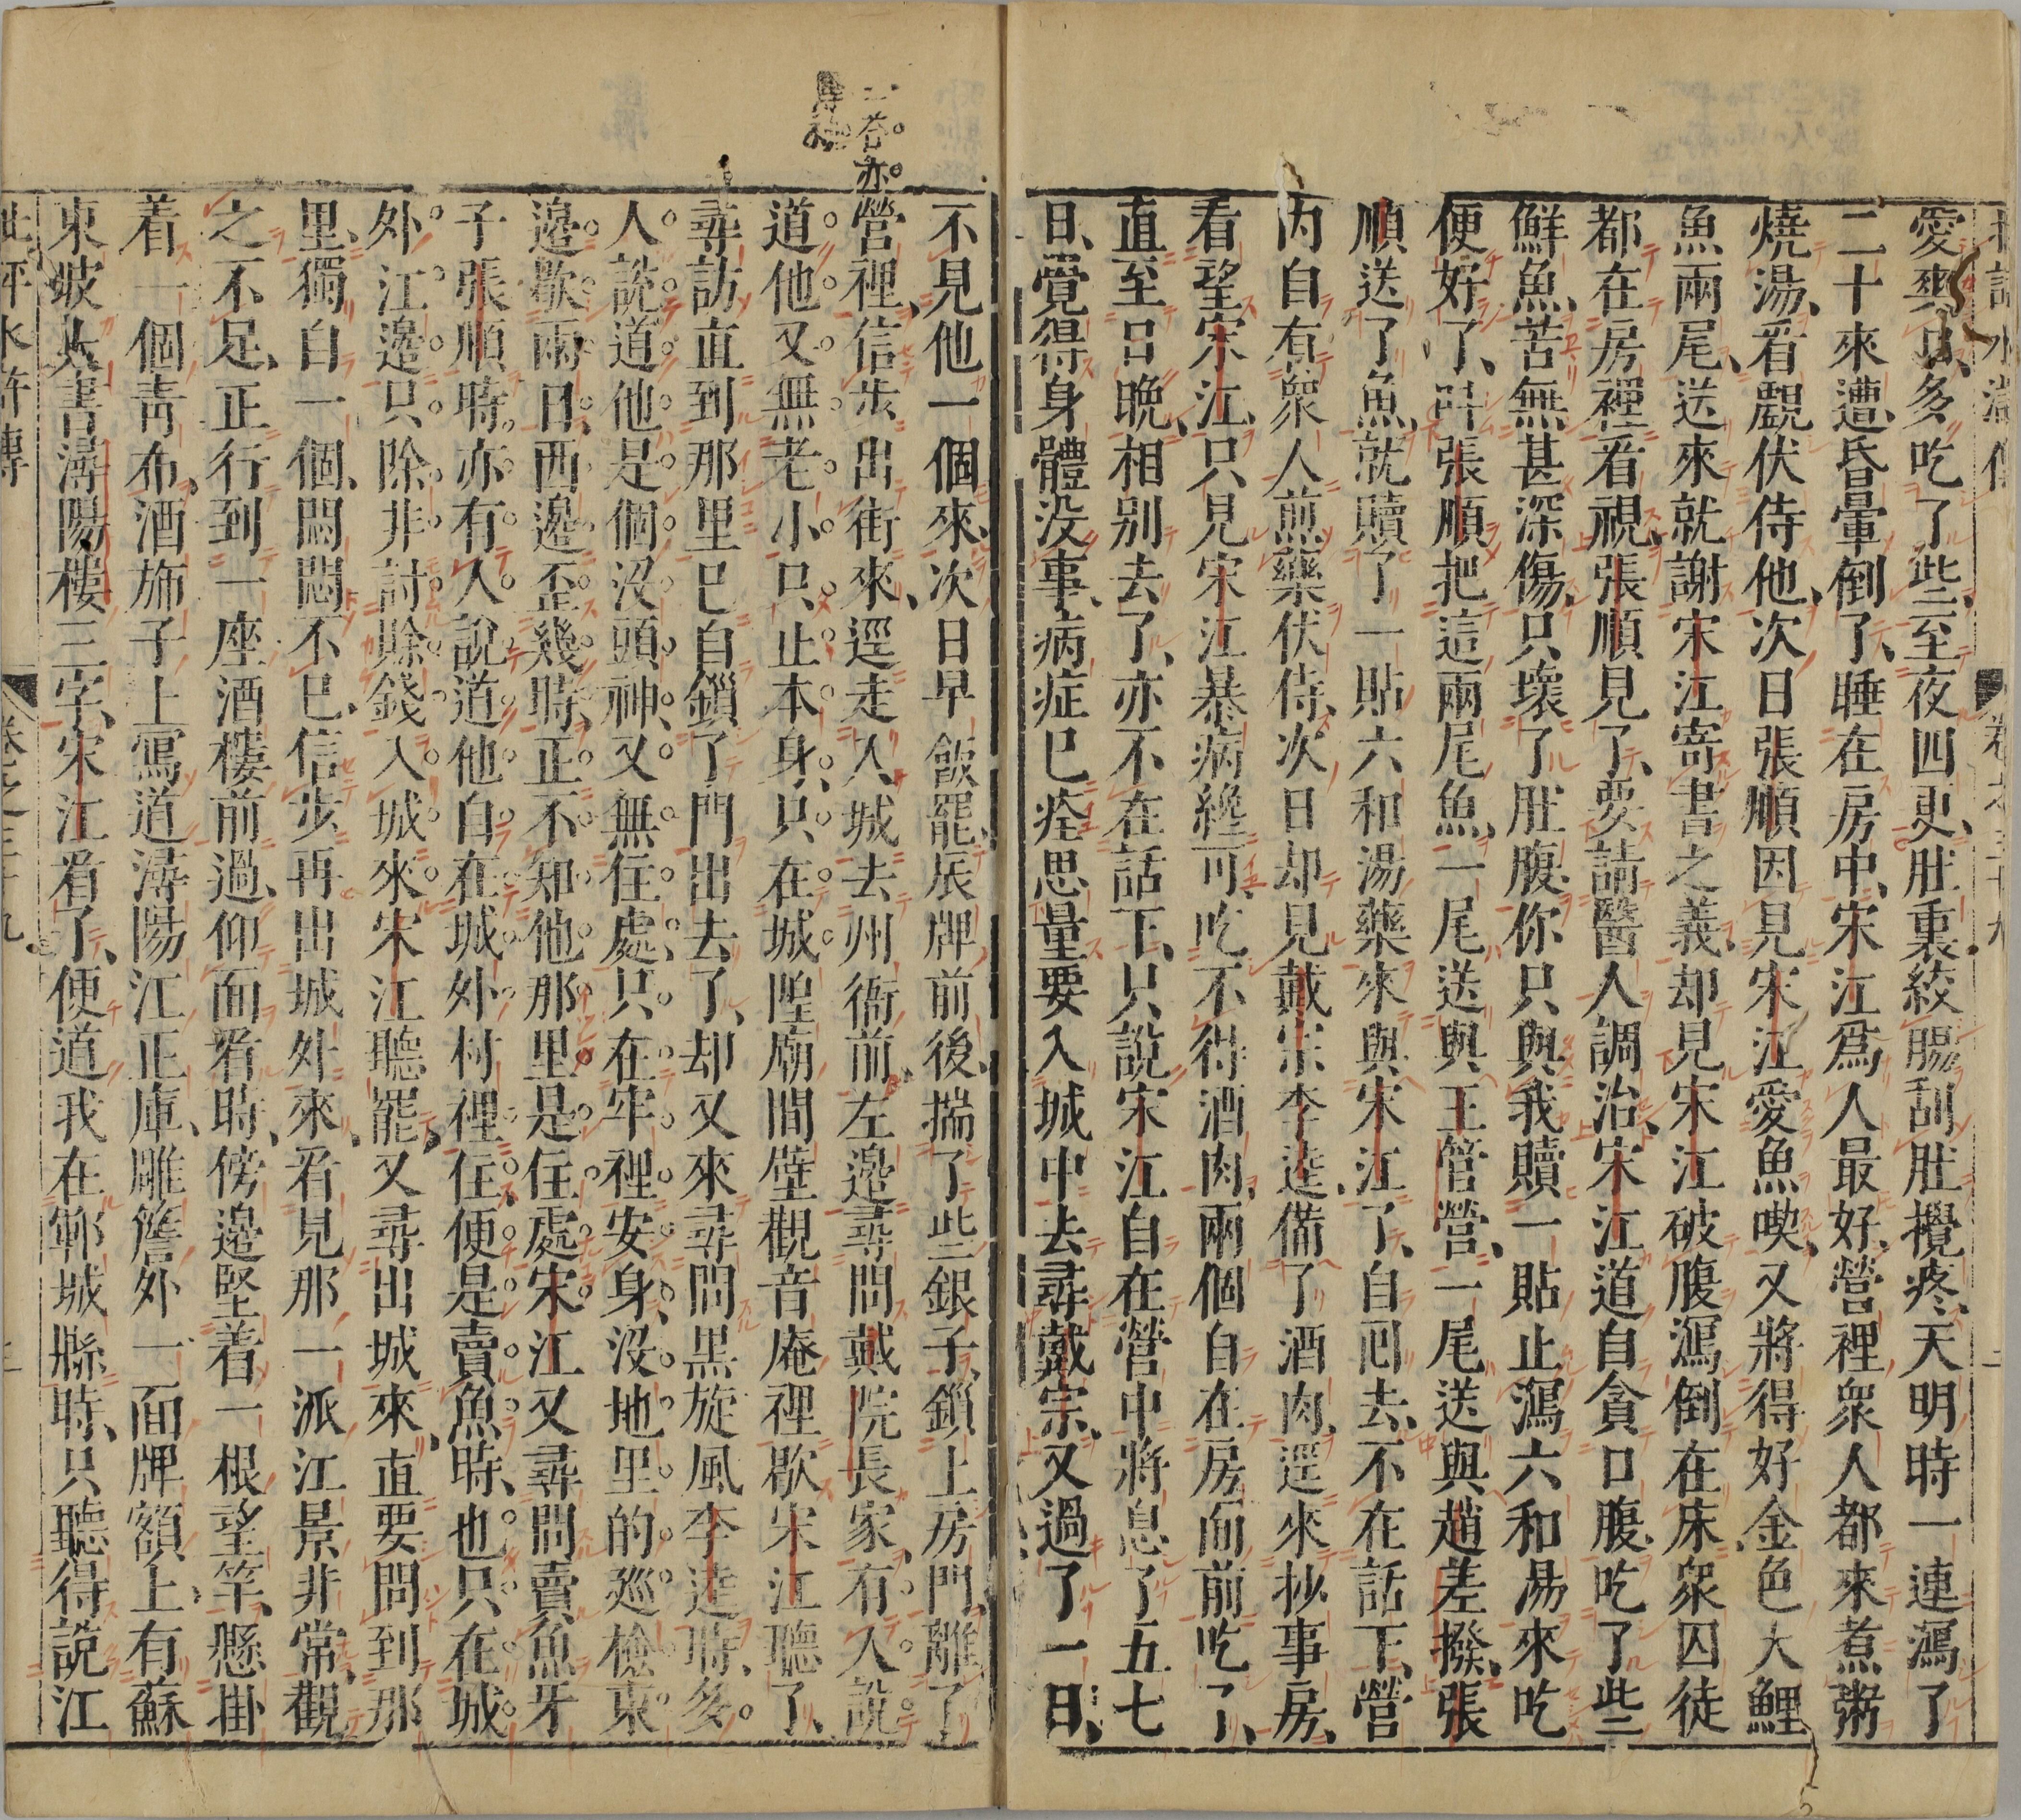 愛爽口多吃了些至夜四更肚裏絞腸刮肚攪疼天明時一連瀉了
二十來遭昏暈倒了睡在房中宋江爲人最好營裡衆人都來煮粥
燒湯看覷伏侍他次日張順因見宋江愛魚喫又將得好金色大鯉
魚兩尾送來就謝宋江寄書之義却見宋江破腹瀉倒在床衆囚徒
都在房裡看視張順見了要請醫人調治宋江道自貪口腹吃了些
鮮魚苦無甚深傷只壞了肚腹你只與我贖一貼止瀉六和湯來吃
便好了叫張順把這兩尾魚一尾送與王管營一尾送與趙差撥張
順送了魚就贖了一貼六和湯藥來與宋江了自回去不在話下營
內自有衆人煎藥伏侍次日却見戴宗李逵備了酒肉逕來抄事房
看望宋江只見宋江暴病纔可吃不得酒肉兩個自在房面前吃了
直至日晚相別去了亦不在話下只說宋江自在營中將息了五七
日覺得身體没事病症已痊思量要入城中去尋戴宗又過了一日
不見他一個來次日早飯罷辰牌前後揣了些銀子鎖上房門離了
營裡信步出街來逕走入城去州衙前左邊尋問戴院長家有人說
道他又無老小只止本身只在城隍廟間壁觀音庵裡歇宋江聽了
尋訪直到那里已自鎖了門出去了却又來尋問黑旋風李逵時多
人說道他是個没頭神又無住處只在牢裡安身没地里的巡檢東
邊歇兩日西邊歪幾時正不知他那里是住處宋江又尋問賣魚牙
子張順時亦有人說道他自在城外村裡住便是賣魚時也只在城
外江邊只除非討賒錢入城來宋江聽罷又尋出城來直要問到那
里獨自一個悶悶不已信步再出城外來看見那一派江景非常觀
之不足正行到一座酒樓前過仰面看時傍邊竪着一根望竿懸掛
着一個青布酒旆子上寫道潯陽江正庫雕簷外一面牌額上有蘇
東坡大書潯陽樓三字宋江看了便道我在鄆城縣時只聽得說江